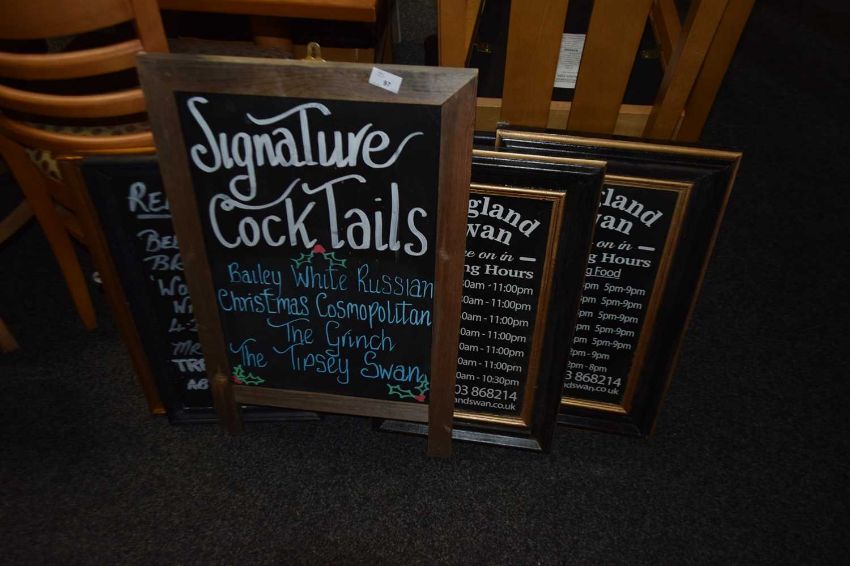 97
Signature
Cocktails
Bailey White Russian
Christmas Cosmopolitan
The Grinch
The Tipsey Swan
gland
wan
e on in
ng Hours
0am - 11:00pm
am - 11:00pm
am - 11:00pm
am - 11:00pm
0am - 11:00pm
am - 11:00pm
am - 10:30pm
03 868214
andswan.co.uk
gland
wan
e on in
g Hours
g Food
pm 5pm-9pm
pm 5pm-9pm
pm 5pm-9pm
5pm-9pm
pm 5pm-9pm
pm - 9pm
2pm - 8pm
03 868214
ndswan.co.uk
Re
Be
BR
Wo
4-2
MR
TRE
AB